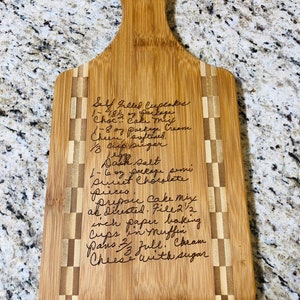 Self Filled Cupcakes
1 - 18½ oz package
Choc. Cake Mix
1 - 8 oz package Cream
Cheese, softened
⅓ cup sugar
1 egg
Dash salt
1 - 6 oz package semi
sweet chocolate
pieces.
prepare Cake Mix
as Directed. Fill 2½
inch paper baking
Cups in Muffin
Pans ⅔ full. Cream
Cheese with sugar